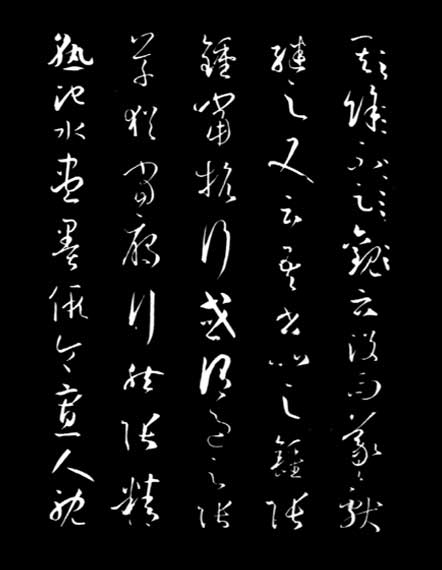 餘不足觀云沒而羲獻
繼之又云吾書比之鍾張
鍾當抗行或謂過之張
草猶當雁行然張精
熟池水盡墨假令寡人耽